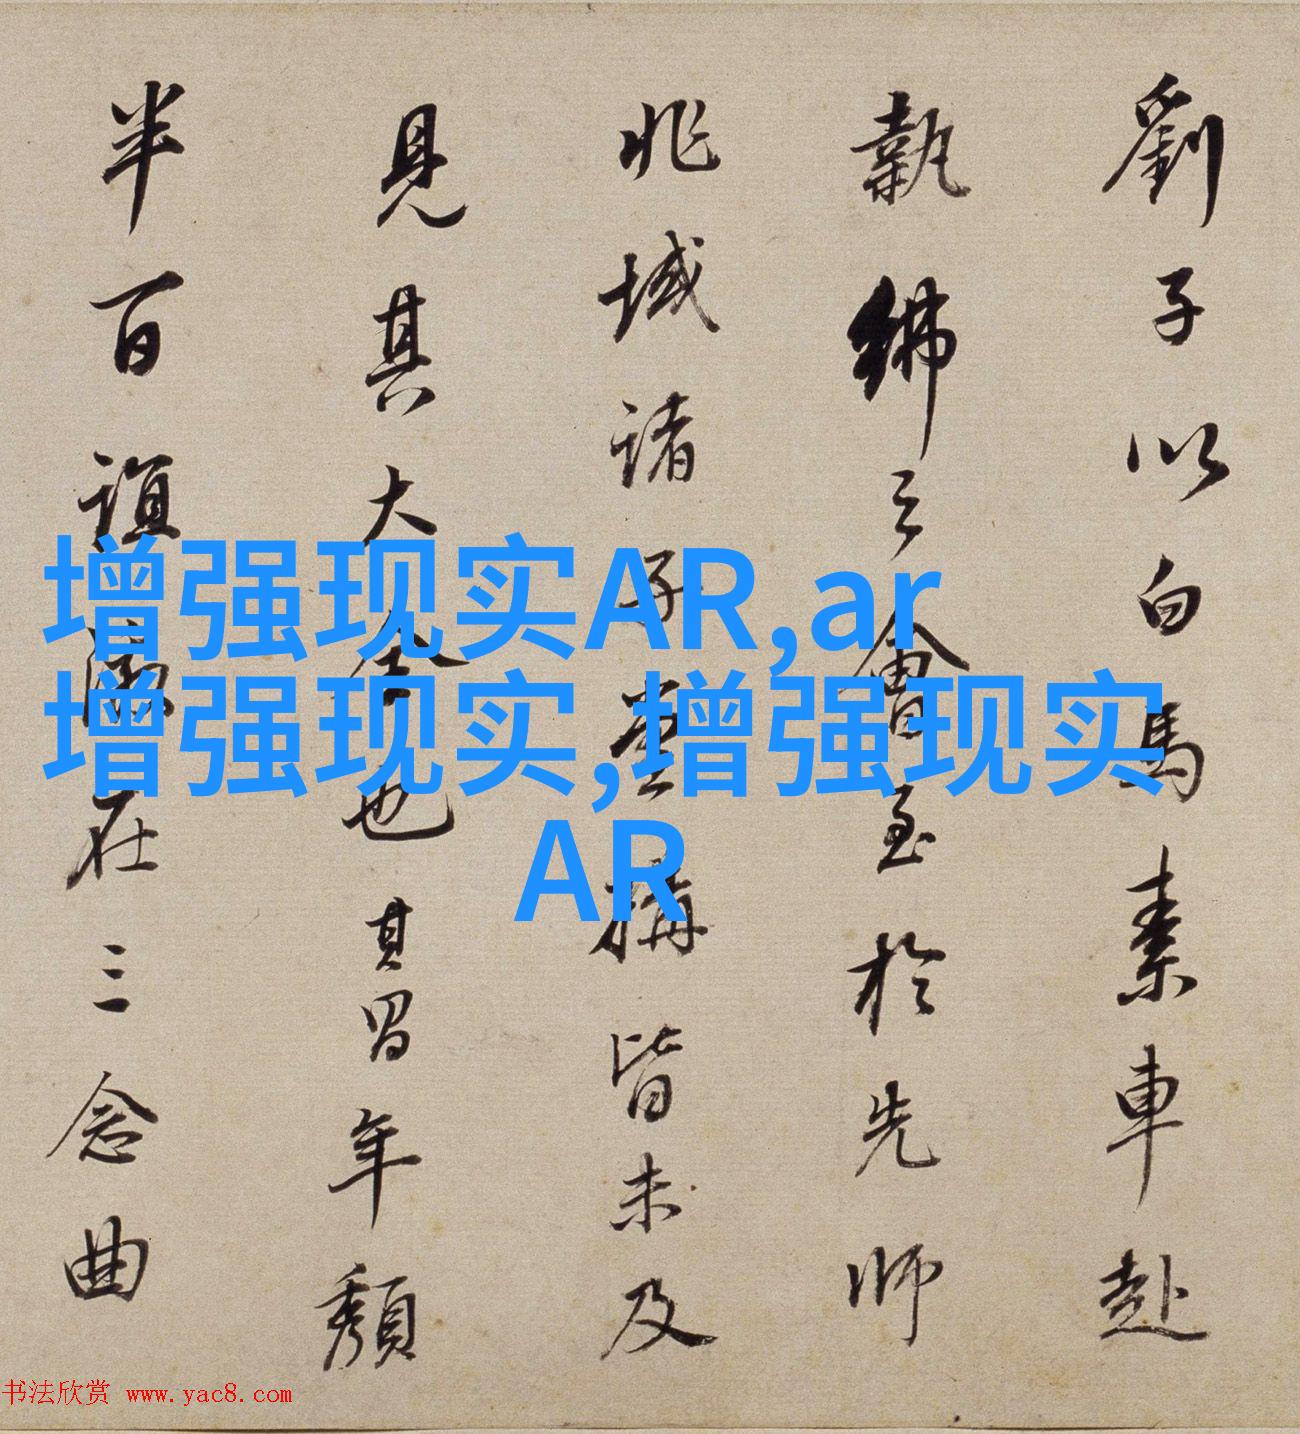 劉子以白馬素車赴
執紼之會至於先師
兆域諸子堂構皆未及
見其大全也其年頽
半百誼在三念曲
增强现实AR,ar
增强现实,增强现实
AR
书法欣赏 www.yac8.com